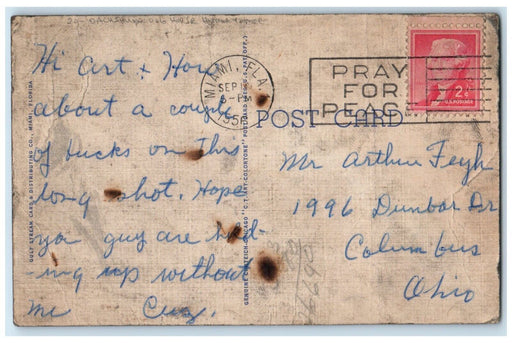 Hi Art + How
about a couple
of bucks on this
long shot. Hope
you guy are hold-
ing up without
me Cuz.
MIAMI, FLA.
SEP
PM
1956
PRAY
FOR
PEACE
2¢
U.S. POSTAGE
POST CARD
Mr Arthur Feigh
1996 Dunbar Dr
Columbus
Ohio
GULF STREAM CARD & DISTRIBUTING CO., MIAMI, FLORIDA
GENUINE CURTEICH-CHICAGO "C.T. ART-COLORTONE" POST CARD (REG. U.S. PAT. OFF.)